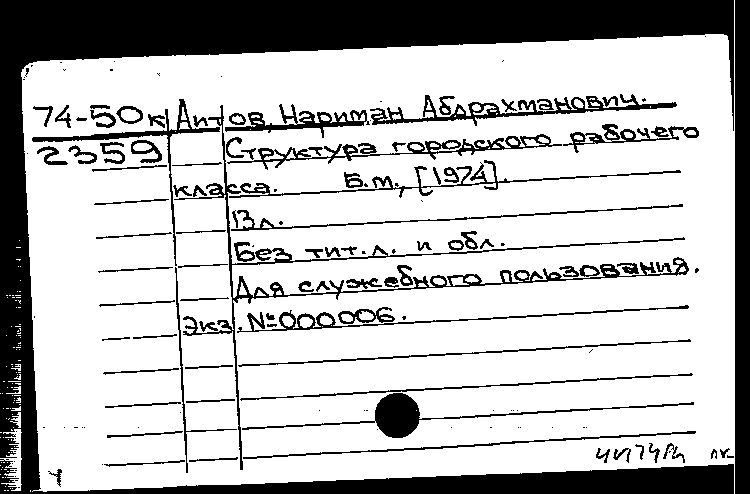 74-50к Аитов, Нариман Абдрахманович.
2359 Структура городского рабочего
класса. Б.м., [1974].
13 л.
Без тит.л. и обл.
Для служебного пользования.
Экз. №000006.